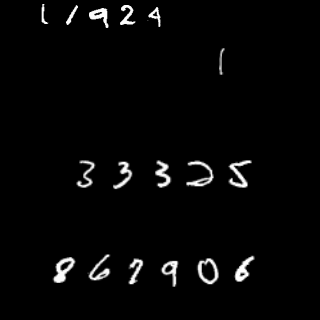 11924
1
33325
867906